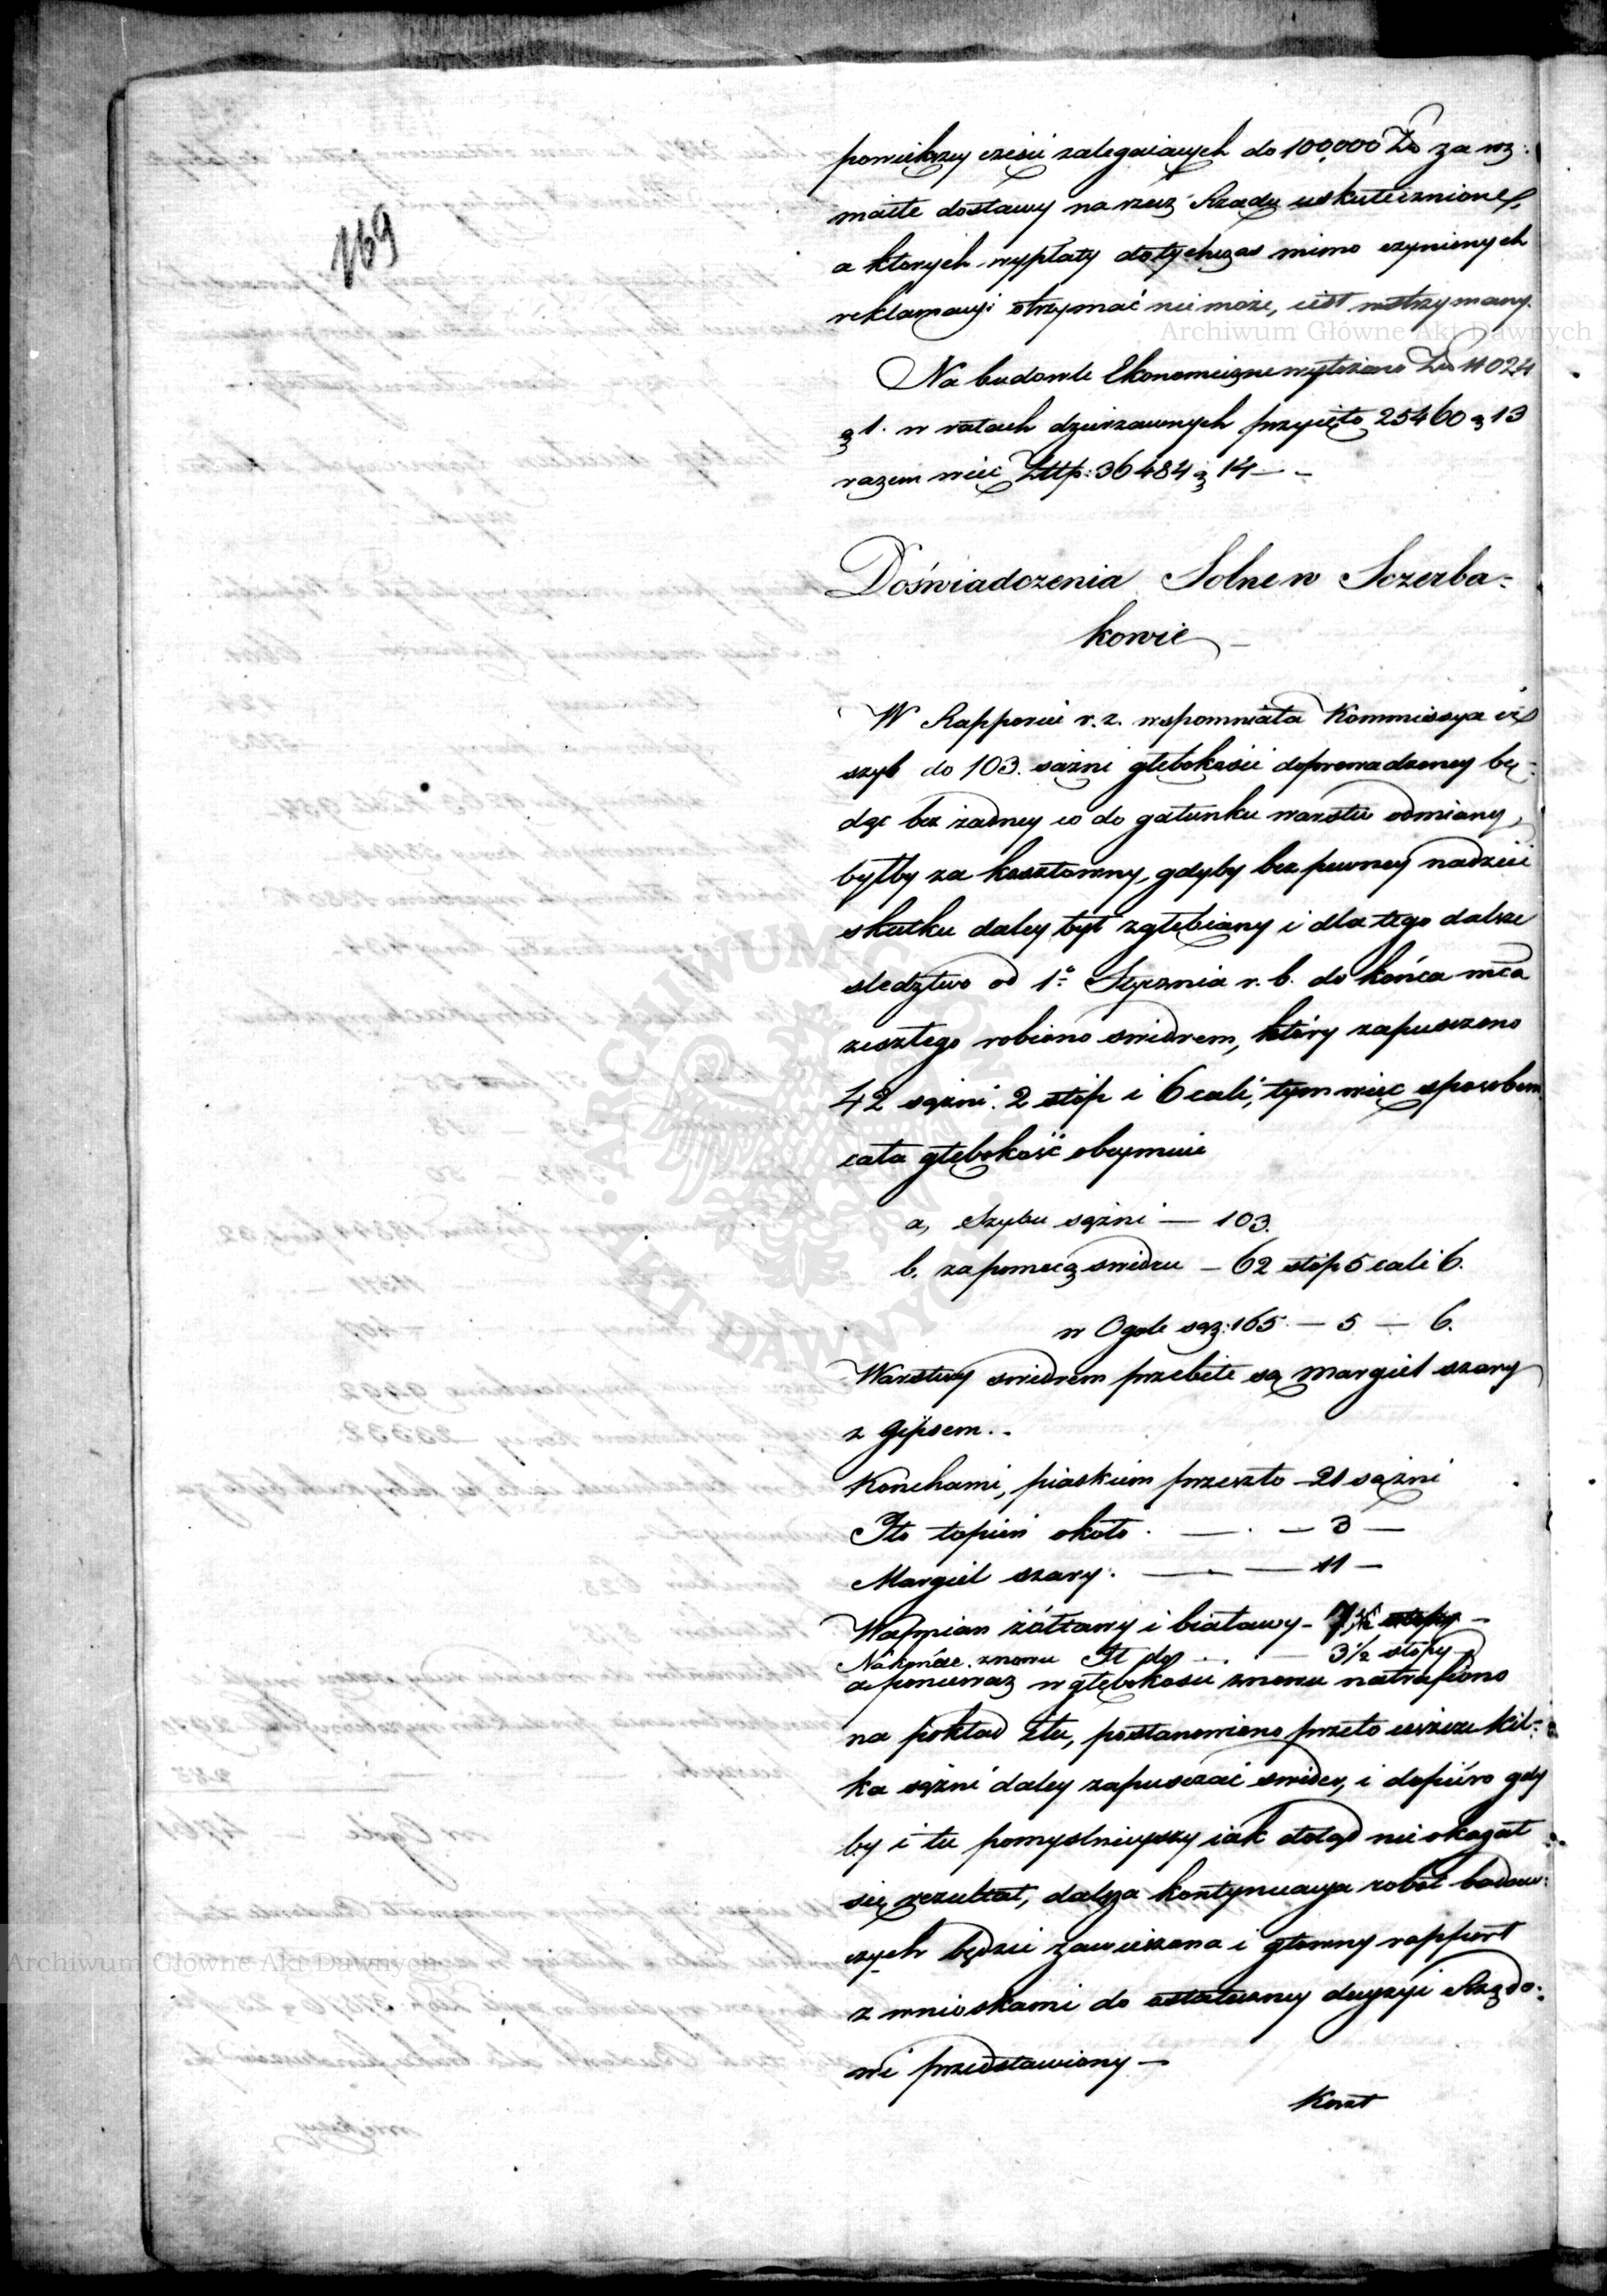 169
powiekszey części zalegaiących do 100,000 Zło za roz:
maite dostawy na rzecz Rządu uskutecznione,
a których wypłaty dotychczas mimo czynionych
reklamacyi otrzymać nie może, iest wstrzymany.
Na budowle Ekonomiczne wyłożono Zło 11024
g 1. w ratach dzierzawnych przyięto 25460 g 13
razem wiec Złłp: 36484 g 14 — -
Doświadczenia Solne w Sczerba-
kowie —
W Rapporcie r. z. wspomniała Kommissya iż
szyb do 103. sążni głębokości doprowadzony bę-
dąc bez żadney co do gatunku warstw odmiany,
byłby za kosztowny, gdyby bez pewney nadziei
skutku daley był zgłębiany i dla tego dalsze
sledztwo od 1º Stycznia r. b. do końca mca
zeszłego robiono swidrem, który zapuszczono
42 sążni. 2 stóp i 6 cali, tym wiec sposobem
cała głębokość obeymuie
a, Szybu sążni — 103.
b. za pomocą swidru — 62 stóp 5 cali 6.
w Ogole sąż: 165 — 5 — 6.
Warstwy swidrem przebite są Margiel szary
z gipsem. -
Konchami, piaskiem przeszło — 21 sążni
Iło łupień około . — . — 3 —
Margiel szary . — . — 11 —
Wapnian żółtawy i białawy — 7
Nakońcie znowu Ił do . — 3 1/2 stopy
a ponieważ w głębokosci znowu natrafiono
na pokład Iłu, postanowiono przeto ieszcze kil-
ka sążni daley zapuszczać swider, i dopiéro gdy
by i tu pomyslnieyszy iak dotąd nie okazał
się rezultat, dalsza kontynuacya robót badaw-
czych będzie zawieszona i głowny rapport
z wnioskami do ostateczney decyzyi Rządo-
wi przedstawiony —
Koszt
Archiwum Główne Akt Dawnych
Archiwum Główne Akt Dawnych
ARCHIWUM GŁÓWNE AKT DAWNYCH